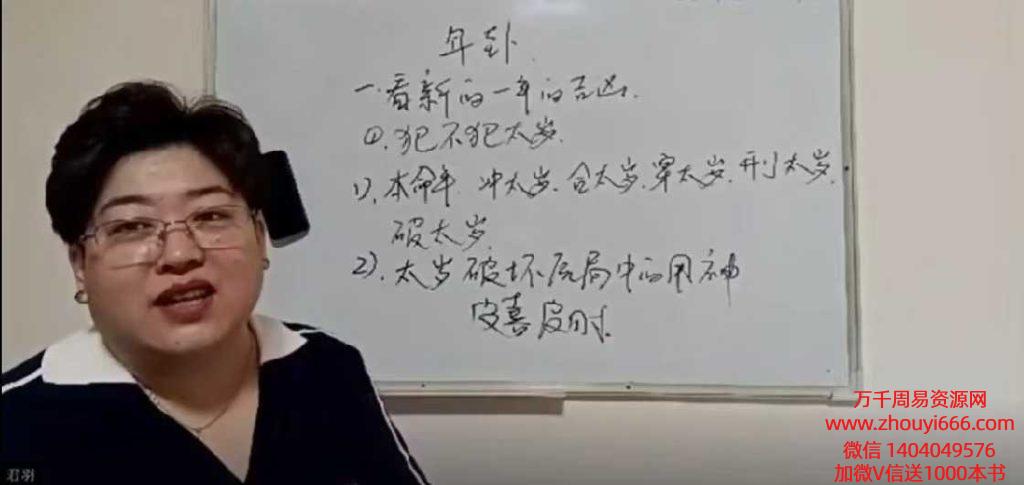 年卦.
一.看新的一年的吉凶.
①.犯不犯太岁.
1).本命年.冲太岁.合太岁.穿太岁.刑太岁.
破太岁.
2).太岁破坏原局中的用神
君羽
万千周易资源网
www.zhouyi666.com
微信 1404049576
加微V信送1000本书